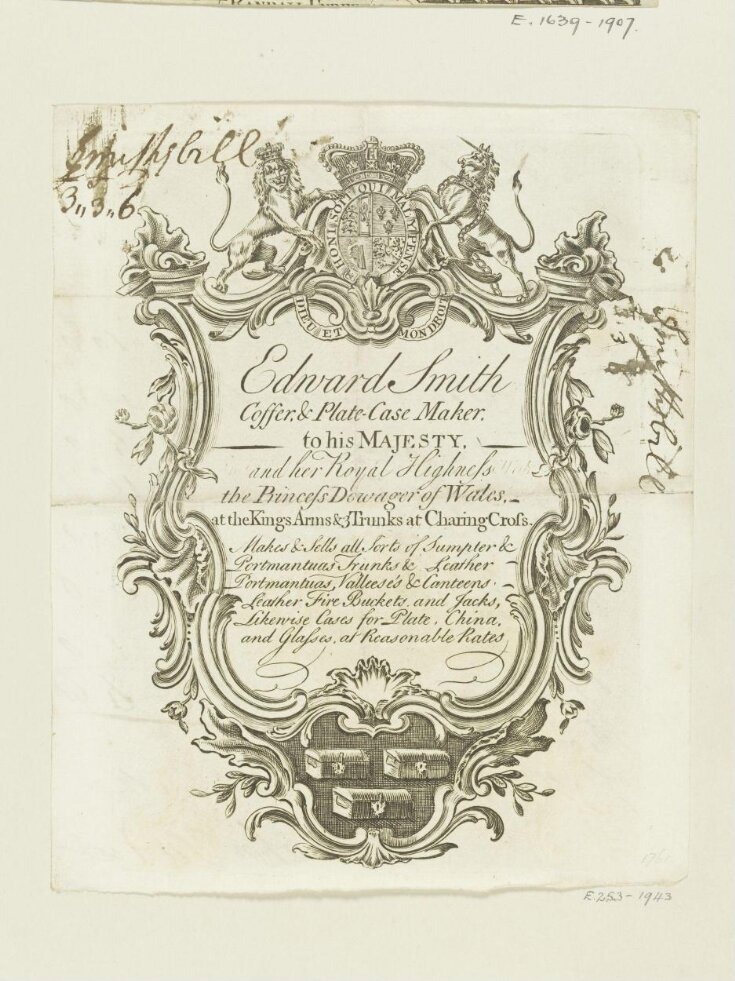 E.1639-1907.
Smiths bill
3,,3,,6
HONI SOIT QUI MAL Y PENSE
DIEU ET MON DROIT
Edward Smith
Coffer, & Plate-Case Maker,
to his MAJESTY,
and her Royal Highneſs
the Princeſs Dowager of Wales,
at the Kings Arms & 3 Trunks at Charing Croſs.
Makes & Sells all Sorts of Sumpter &
Portmantua Trunks & Leather
Portmantuas, Valliese's & Canteens
Leather Fire Buckets, and Jacks,
Likewise Cases for Plate, China,
and Glaſses, at Reasonable Rates
Smiths bill
E.253-1943